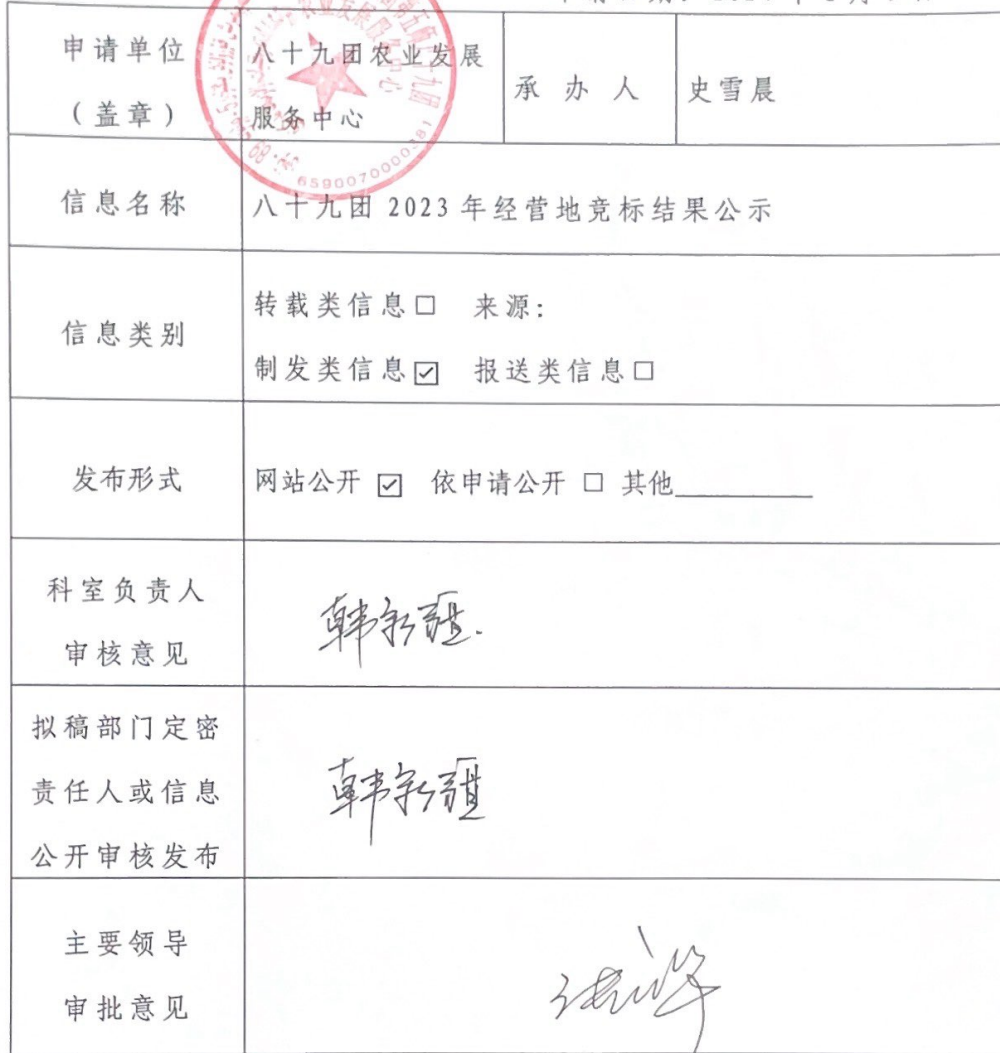 申请单位
(盖章)
八十九团农业发展
服务中心
承办人
史雪晨
6590070000381
信息名称
八十九团 2023 年经营地竞标结果公示
信息类别
转载类信息□ 来源:
制发类信息☑ 报送类信息□
发布形式
网站公开 ☑ 依申请公开 □ 其他
科室负责人
审核意见
韩新疆
拟稿部门定密
责任人或信息
公开审核发布
韩新疆
主要领导
审批意见